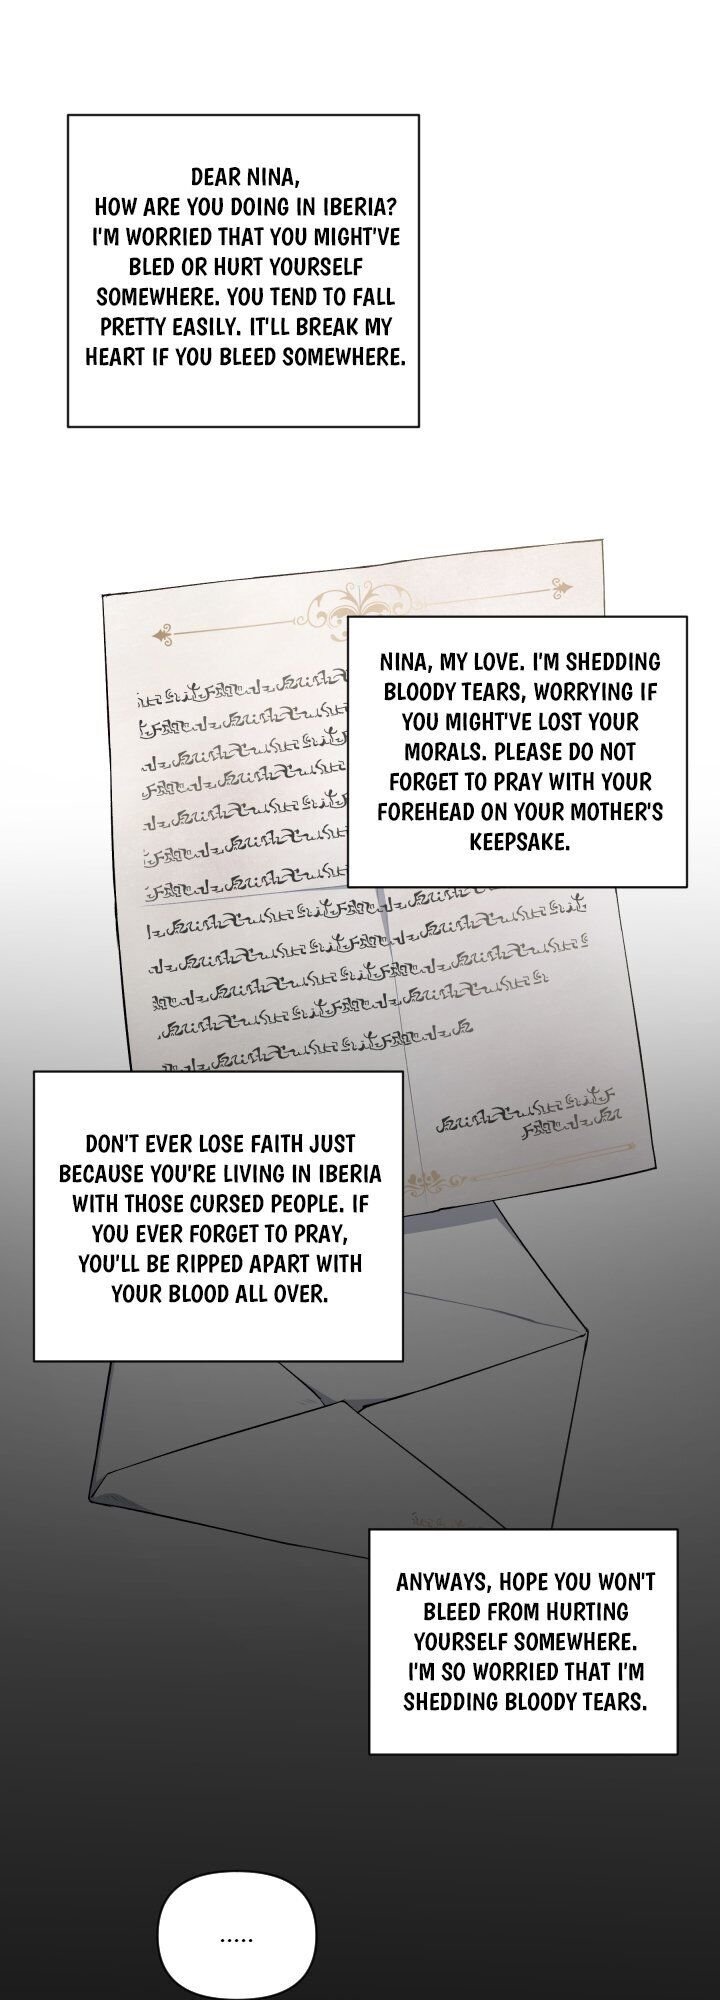 DEAR NINA,
HOW ARE YOU DOING IN IBERIA?
I'M WORRIED THAT YOU MIGHT'VE
BLED OR HURT YOURSELF
SOMEWHERE. YOU TEND TO FALL
PRETTY EASILY. IT'LL BREAK MY
HEART IF YOU BLEED SOMEWHERE.
NINA, MY LOVE. I'M SHEDDING
BLOODY TEARS, WORRYING IF
YOU MIGHT'VE LOST YOUR
MORALS. PLEASE DO NOT
FORGET TO PRAY WITH YOUR
FOREHEAD ON YOUR MOTHER'S
KEEPSAKE.
DON'T EVER LOSE FAITH JUST
BECAUSE YOU'RE LIVING IN IBERIA
WITH THOSE CURSED PEOPLE. IF
YOU EVER FORGET TO PRAY,
YOU'LL BE RIPPED APART WITH
YOUR BLOOD ALL OVER.
ANYWAYS, HOPE YOU WON'T
BLEED FROM HURTING
YOURSELF SOMEWHERE.
I'M SO WORRIED THAT I'M
SHEDDING BLOODY TEARS.
.....